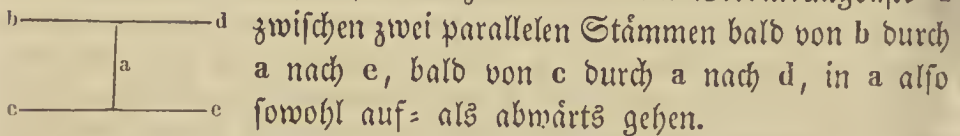 b d zwischen zwei parallelen Stämmen bald von b durch
a a nach e, bald von c durch a nach d, in a also
c e sowohl auf= als abwärts gehen.